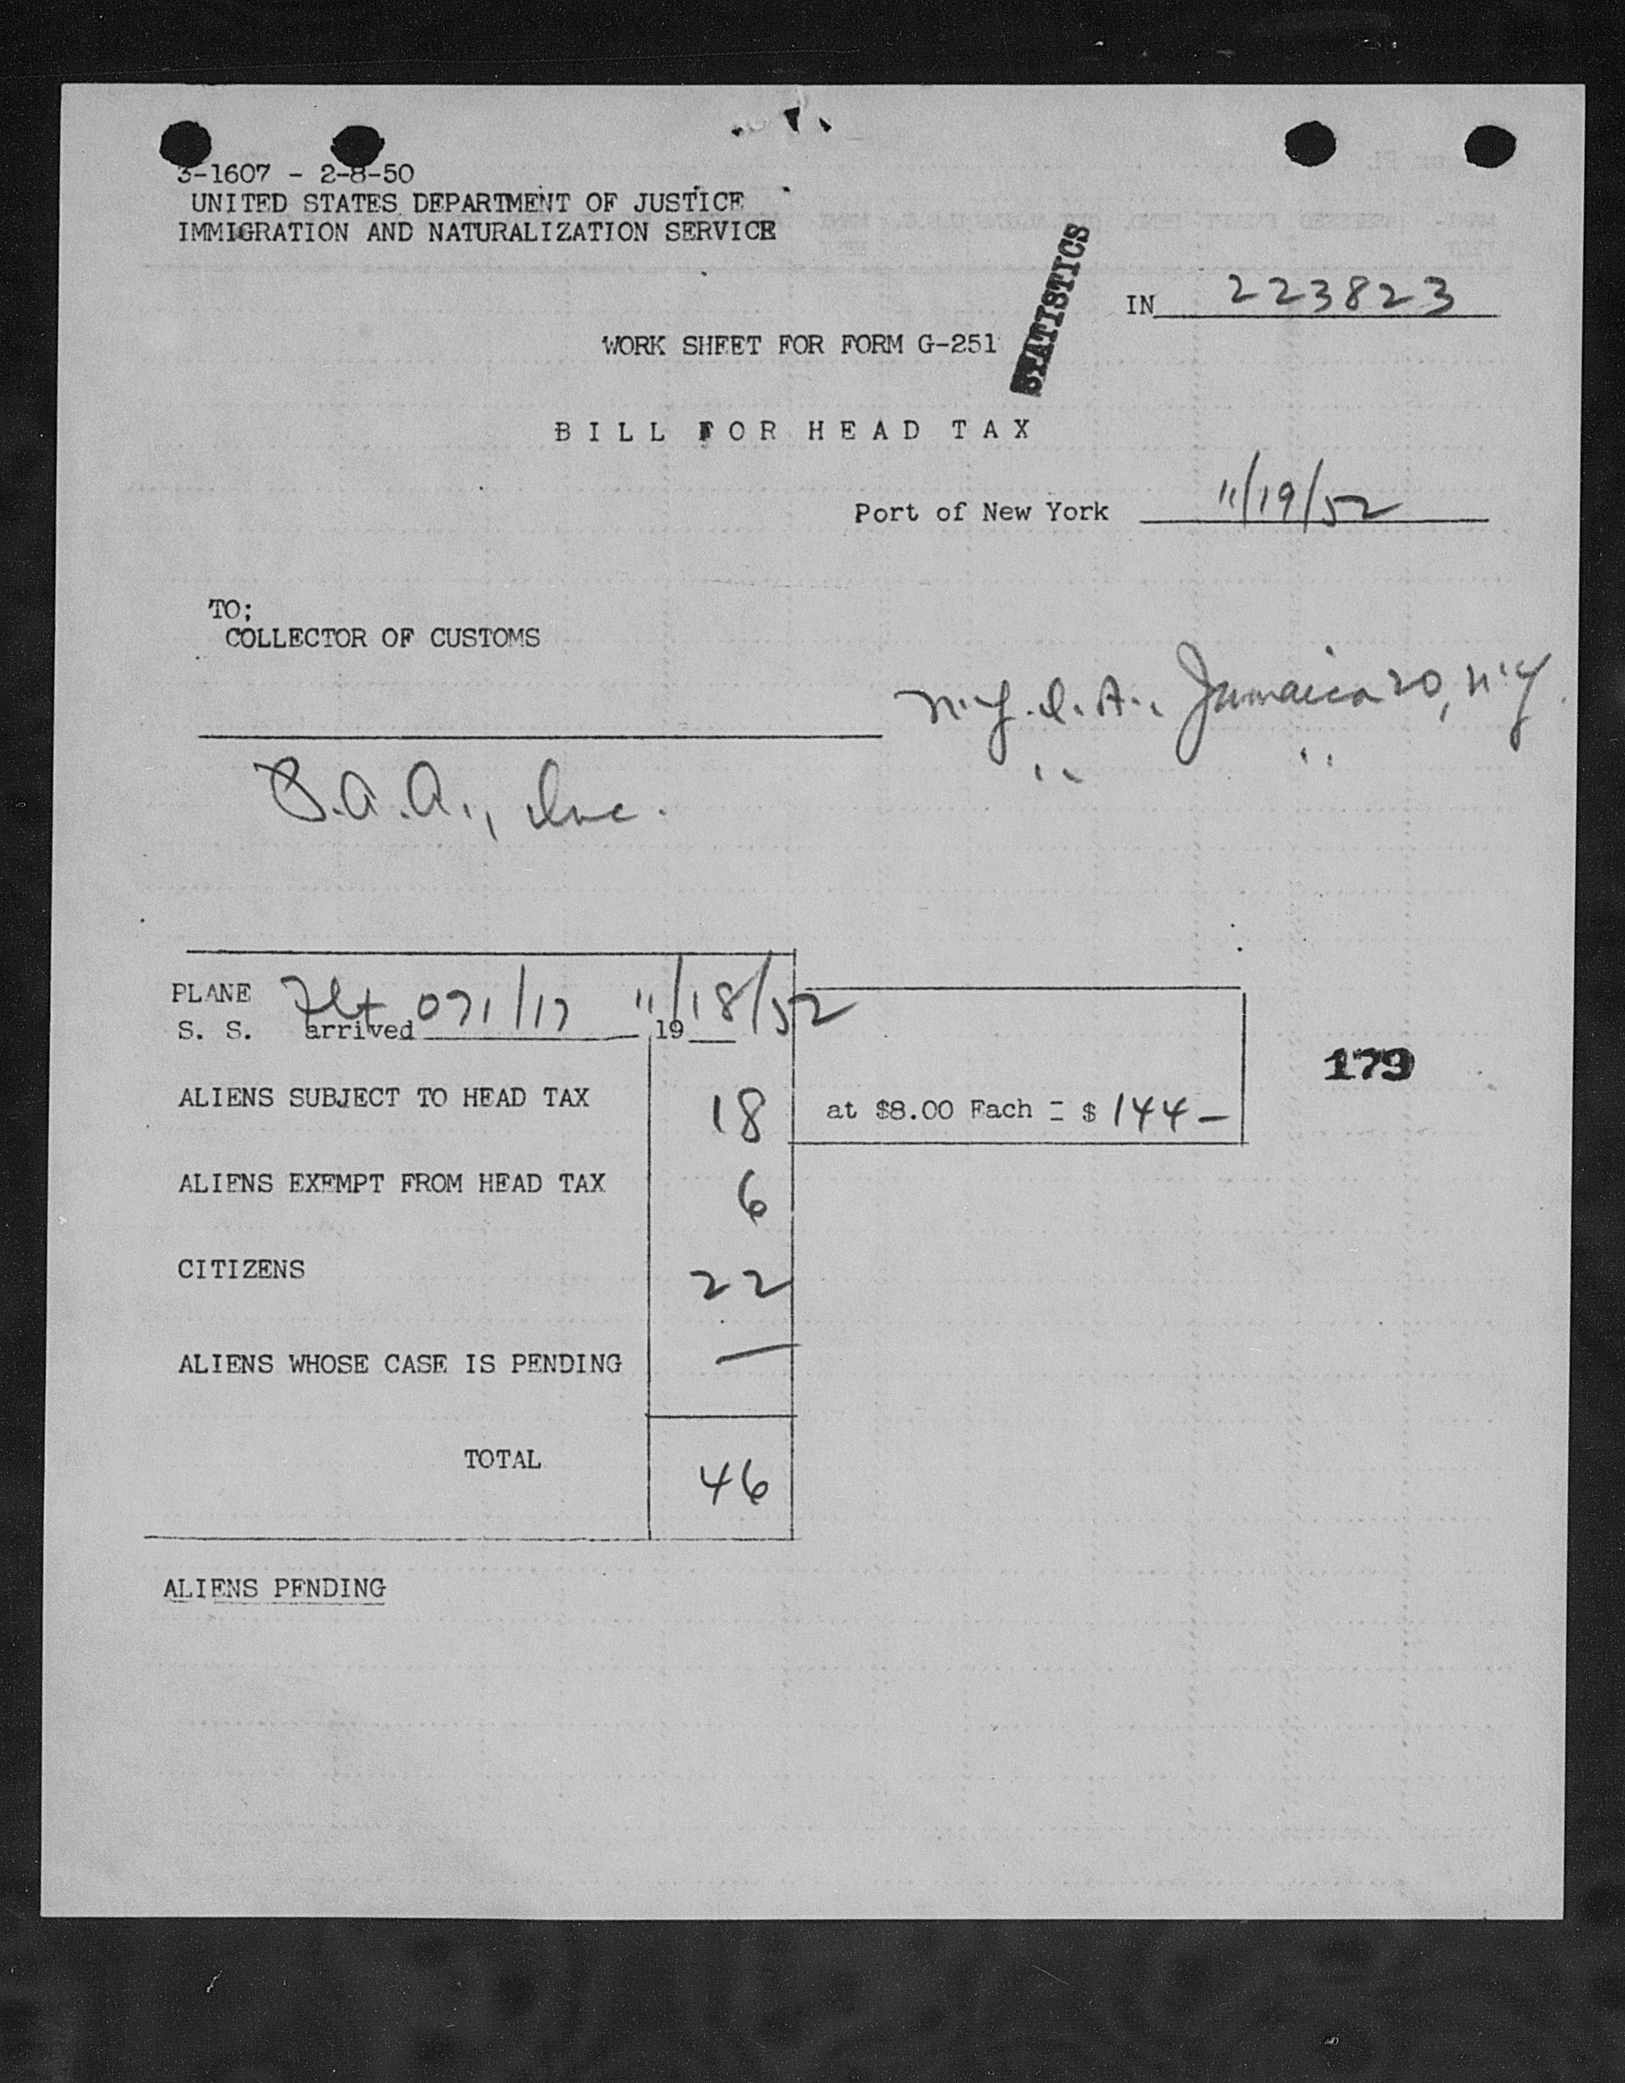 3-1607 - 2-8-50
UNITED STATES DEPARTMENT OF JUSTICE
IMMIGRATION AND NATURALIZATION SERVICE
STATISTICS
IN 223823
WORK SHEET FOR FORM G-251
BILL FOR HEAD TAX
Port of New York 11/19/52
TO;
COLLECTOR OF CUSTOMS
N.Y.I.A., Jamaica 20, N.Y.
" "
.A.A., Inc.
PLANE Flt 071/17 11/18/52
S. S. arrived 19
179
ALIENS SUBJECT TO HEAD TAX 18 at $8.00 Each = $ 144-
ALIENS EXEMPT FROM HEAD TAX 6
CITIZENS 22
ALIENS WHOSE CASE IS PENDING —
TOTAL 46
ALIENS PENDING